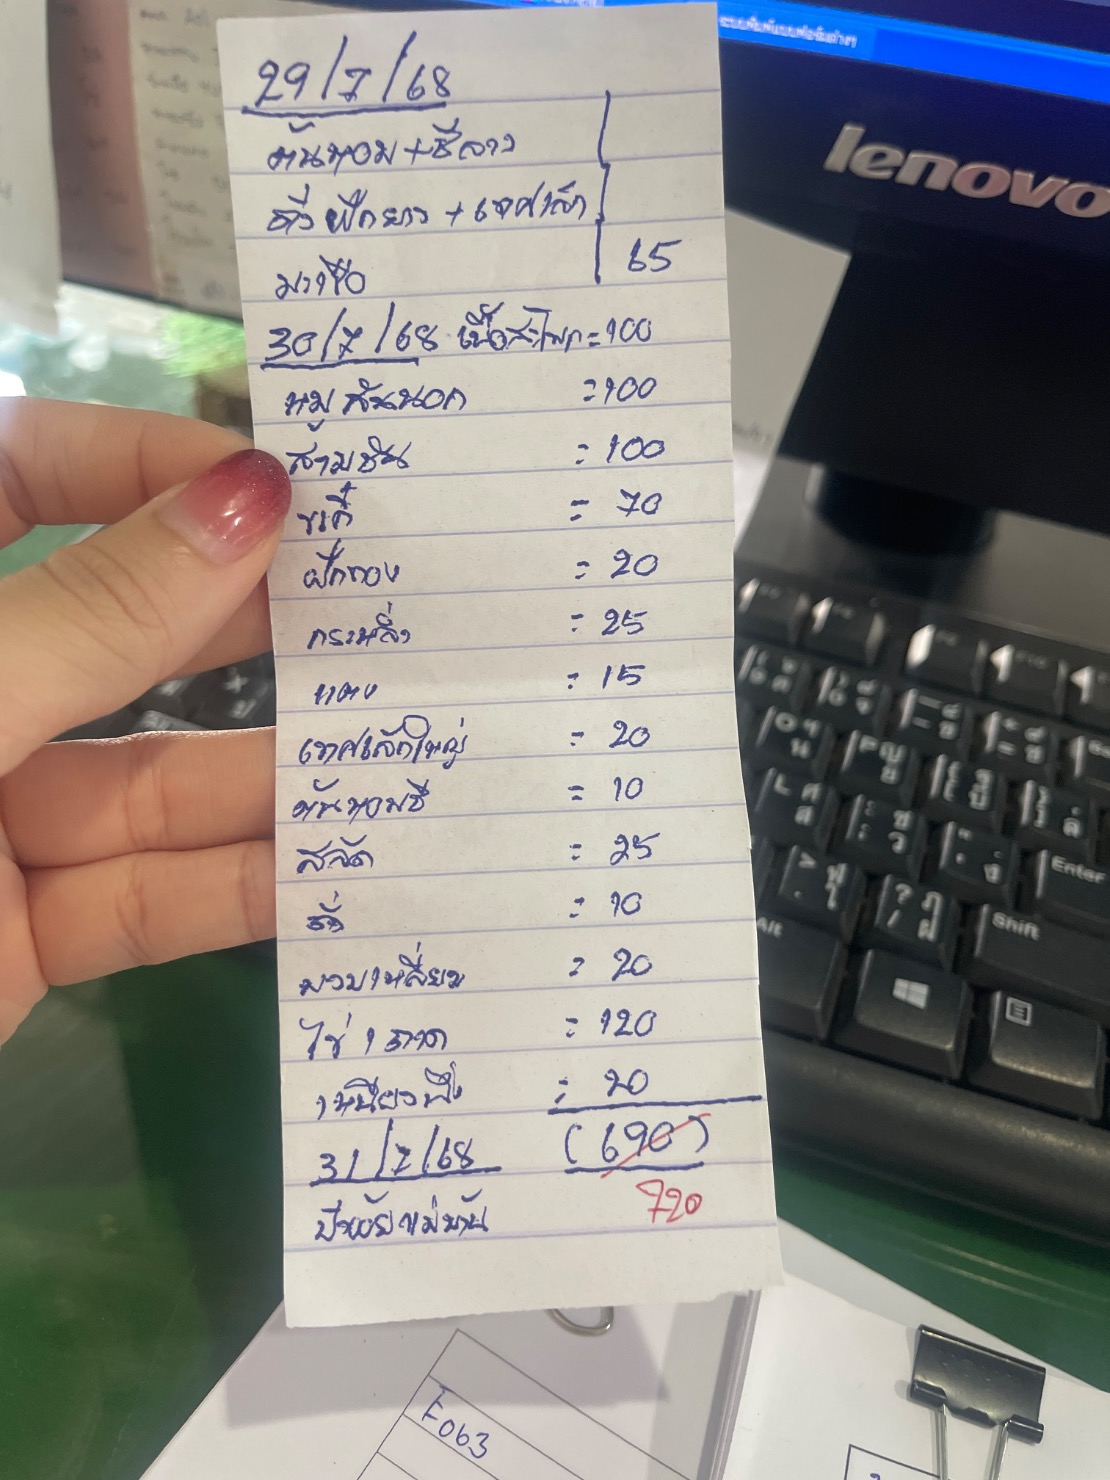 29/7/68
ต้นหอม+ชีลาว
ถั่วฝักยาว + เทศเล็ก
มะเขือ
65
30/7/68 เนื้อสะโพก = 100
หมูสันนอก = 100
สามชั้น = 100
= 70
ฟักทอง = 20
กระหล่ำ = 25
แตง = 15
เทศเล็กใหญ่ = 20
ต้นหอมชี = 10
สลัด = 25
ถั่ว = 10
บวบเหลี่ยม = 20
ไข่ 1 ถาด = 120
เหนียวนึ่ง = 20
31/7/68 (690)
720
แม่บ้าน
lenovo
Enter
Shift
Alt
E063